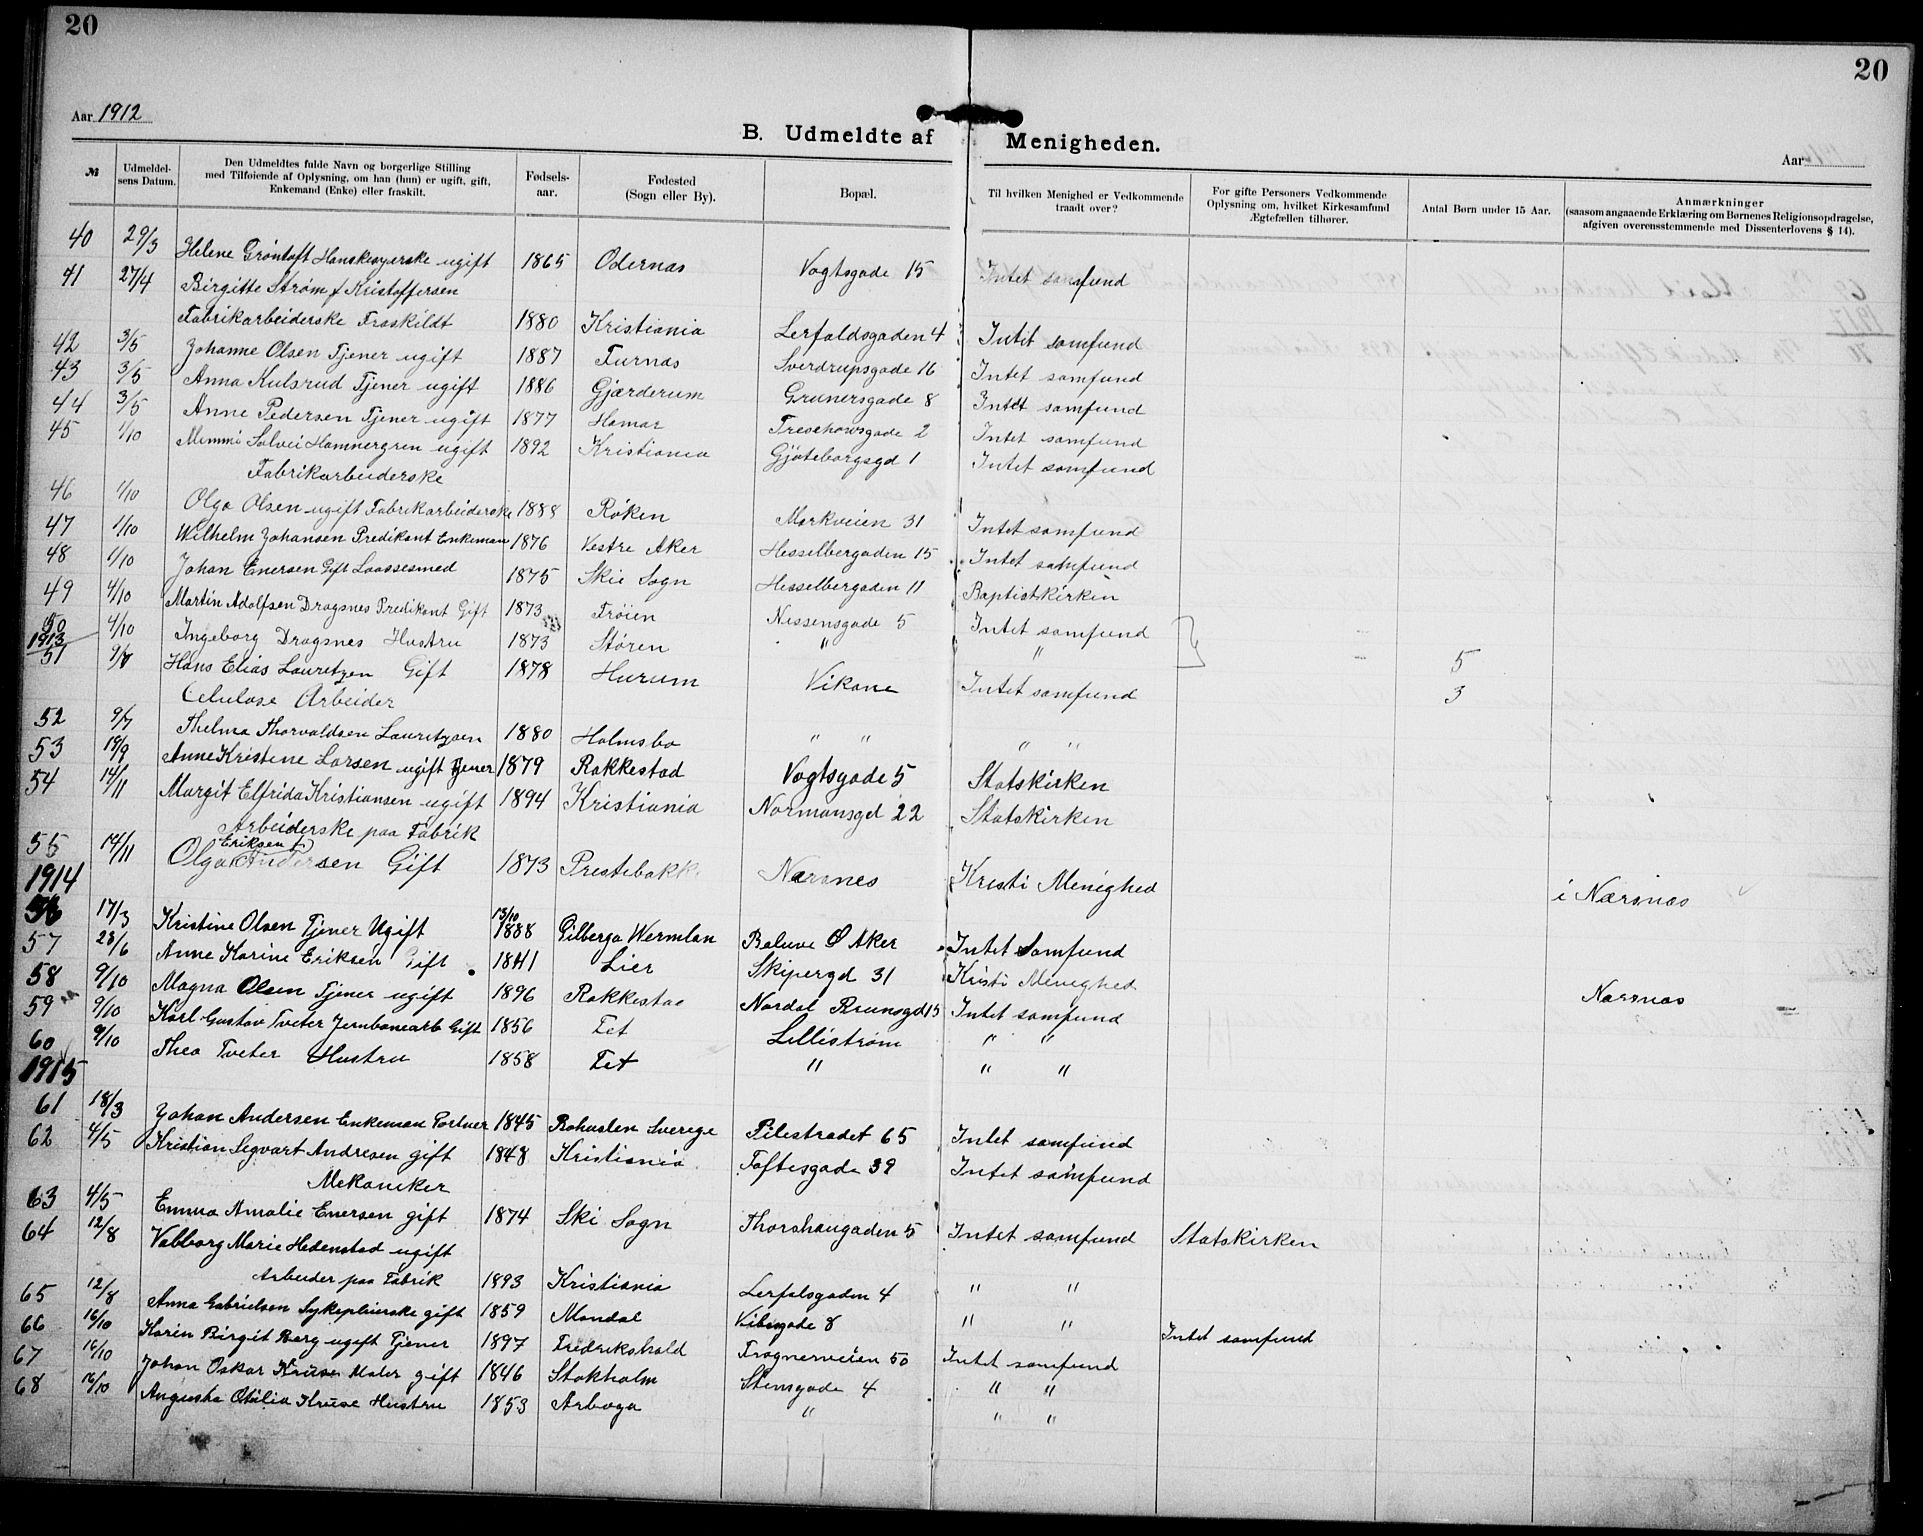 20
20
Aar 1912
B. Udmeldte af Menigheden.
Aar
№
Udmeldel-
sens Datum.
Den Udmeldtes fulde Navn og borgerlige Stilling
med Tilføiende af Oplysning, om han (hun) er ugift, gift,
Enkemand (Enke) eller fraskilt.
Fødsels-
aar.
Fødested
(Sogn eller By).
Bopæl.
Til hvilken Menighed er Vedkommende
traadt over?
For gifte Personers Vedkommende
Oplysning om, hvilket Kirkesamfund
Ægtefællen tilhører.
Antal Børn under 15 Aar.
Anmærkninger
(saasom angaaende Erklæring om Børnenes Religionsopdragelse,
afgiven overensstemmende med Dissenterlovens § 14).
40 29/3 Helene Gröntoft ugift 1865 Odernas Vogtsgade 15 Intet samfund
41 27/4 Birgitte Strøm f Kristoffersen
Fabrikarbeiderske Fraskildt 1880 Kristiania Lerfaldsgaden 4 Intet samfund
42 3/5 Johanne Olsen Tjener ugift 1887 Furnas Sverdrupsgade 16 Intet samfund
43 3/5 Anna Kulsrud Tjener ugift 1886 Gjærderum Grunersgade 8 Intet samfund
44 3/5 Anne Pedersen Tjener ugift 1877 Hamar Treschowsgade 2 Intet samfund
45 1/10 Mimmi Solvei Hamnergren ugift 1892 Kristiania Gjøteborgsgd 1 Intet samfund
Fabrikarbeiderske
46 1/10 Olga Olsen ugift Fabrikarbeiderske 1888 Røken Markveien 31 Intet samfund
47 1/10 Wilhelm Johansen Predikant Enkeman 1876 Vestre Aker Hesselbergaden 15 Intet samfund
48 1/10 Johan Enersen Gift Laassesmed 1875 Skie Sogn Hesselbergaden 11 Baptistkirken
49 4/10 Martin Adolfsen Dragsnes Predikant Gift 1873 Frøien Nissensgade 5 Intet samfund
50 4/10 Ingeborg Dragsnes Hustru 1873 Støren " " 5
1913
51 9/7 Hans Elias Lauretzen Gift 1878 Hurum Vikane Intet samfund 3
Celulose Arbeider
52 9/7 Thelma Thorvaldsen Lauretzsen 1880 Holmsbo " " " "
53 19/9 Anne Kristine Larsen ugift Tjener 1879 Rakkestad Vogtsgade 5 Statskirken
54 14/11 Margit Elfrida Kristiansen ugift 1894 Kristiania Normansgd 22 Statskirken
Arbeiderske paa Fabrik
Eriksen f
55 14/11 Olga Andersen Gift 1873 Prestebakk Nærsnes Kristi Menighed i Nærsnæs
1914
56 17/3 Kristine Olsen Tjener Ugift 13/10 1888 Gilberga Wermlan Baluve Ø Aker Intet Samfund
57 28/6 Anne Karine Eriksen Gift 1841 Lier Skipergd 31 Kristi Menighed Nærsnæs
58 9/10 Magna Olsen Tjener ugift 1896 Rakkestad Nordal Brunsgd 15 Intet samfund
59 9/10 Karl Gustav Tveter Jernbanearb Gift 1856 Fet Lilliström " "
60 9/10 Thea Tveter Hustru 1858 Fet " " "
1915
61 18/3 Johan Andersen Enkeman Portner 1845 Bohuslen Sverege Pilestradet 65 Intet samfund
62 4/5 Kristian Segvart Andresen gift 1848 Kristiania Toftesgade 39 Intet samfund
Mekaniker
63 4/5 Emma Amalie Enersen gift 1874 Ski Sogn Thorshaugaden 5 Intet samfund Statskirken
64 12/8 Valborg Marie Hedenstad ugift
Arbeider paa Fabrik 1893 Kristiania Lerfalsgaden 4 " "
65 12/8 Anna Gabrielsen Sykepleierske gift 1859 Mandal Vibesgade 8 " " Intet samfund
66 16/10 Karin Birgit Berg ugift Tjener 1897 Frederikshald Frognerveien 50 Intet samfund
67 16/10 Johan Oskar Kruse Maler gift 1846 Stokholm Stensgade 4 " "
68 16/10 Augusta Otilia Kruse Hustru 1853 Arboga " " "